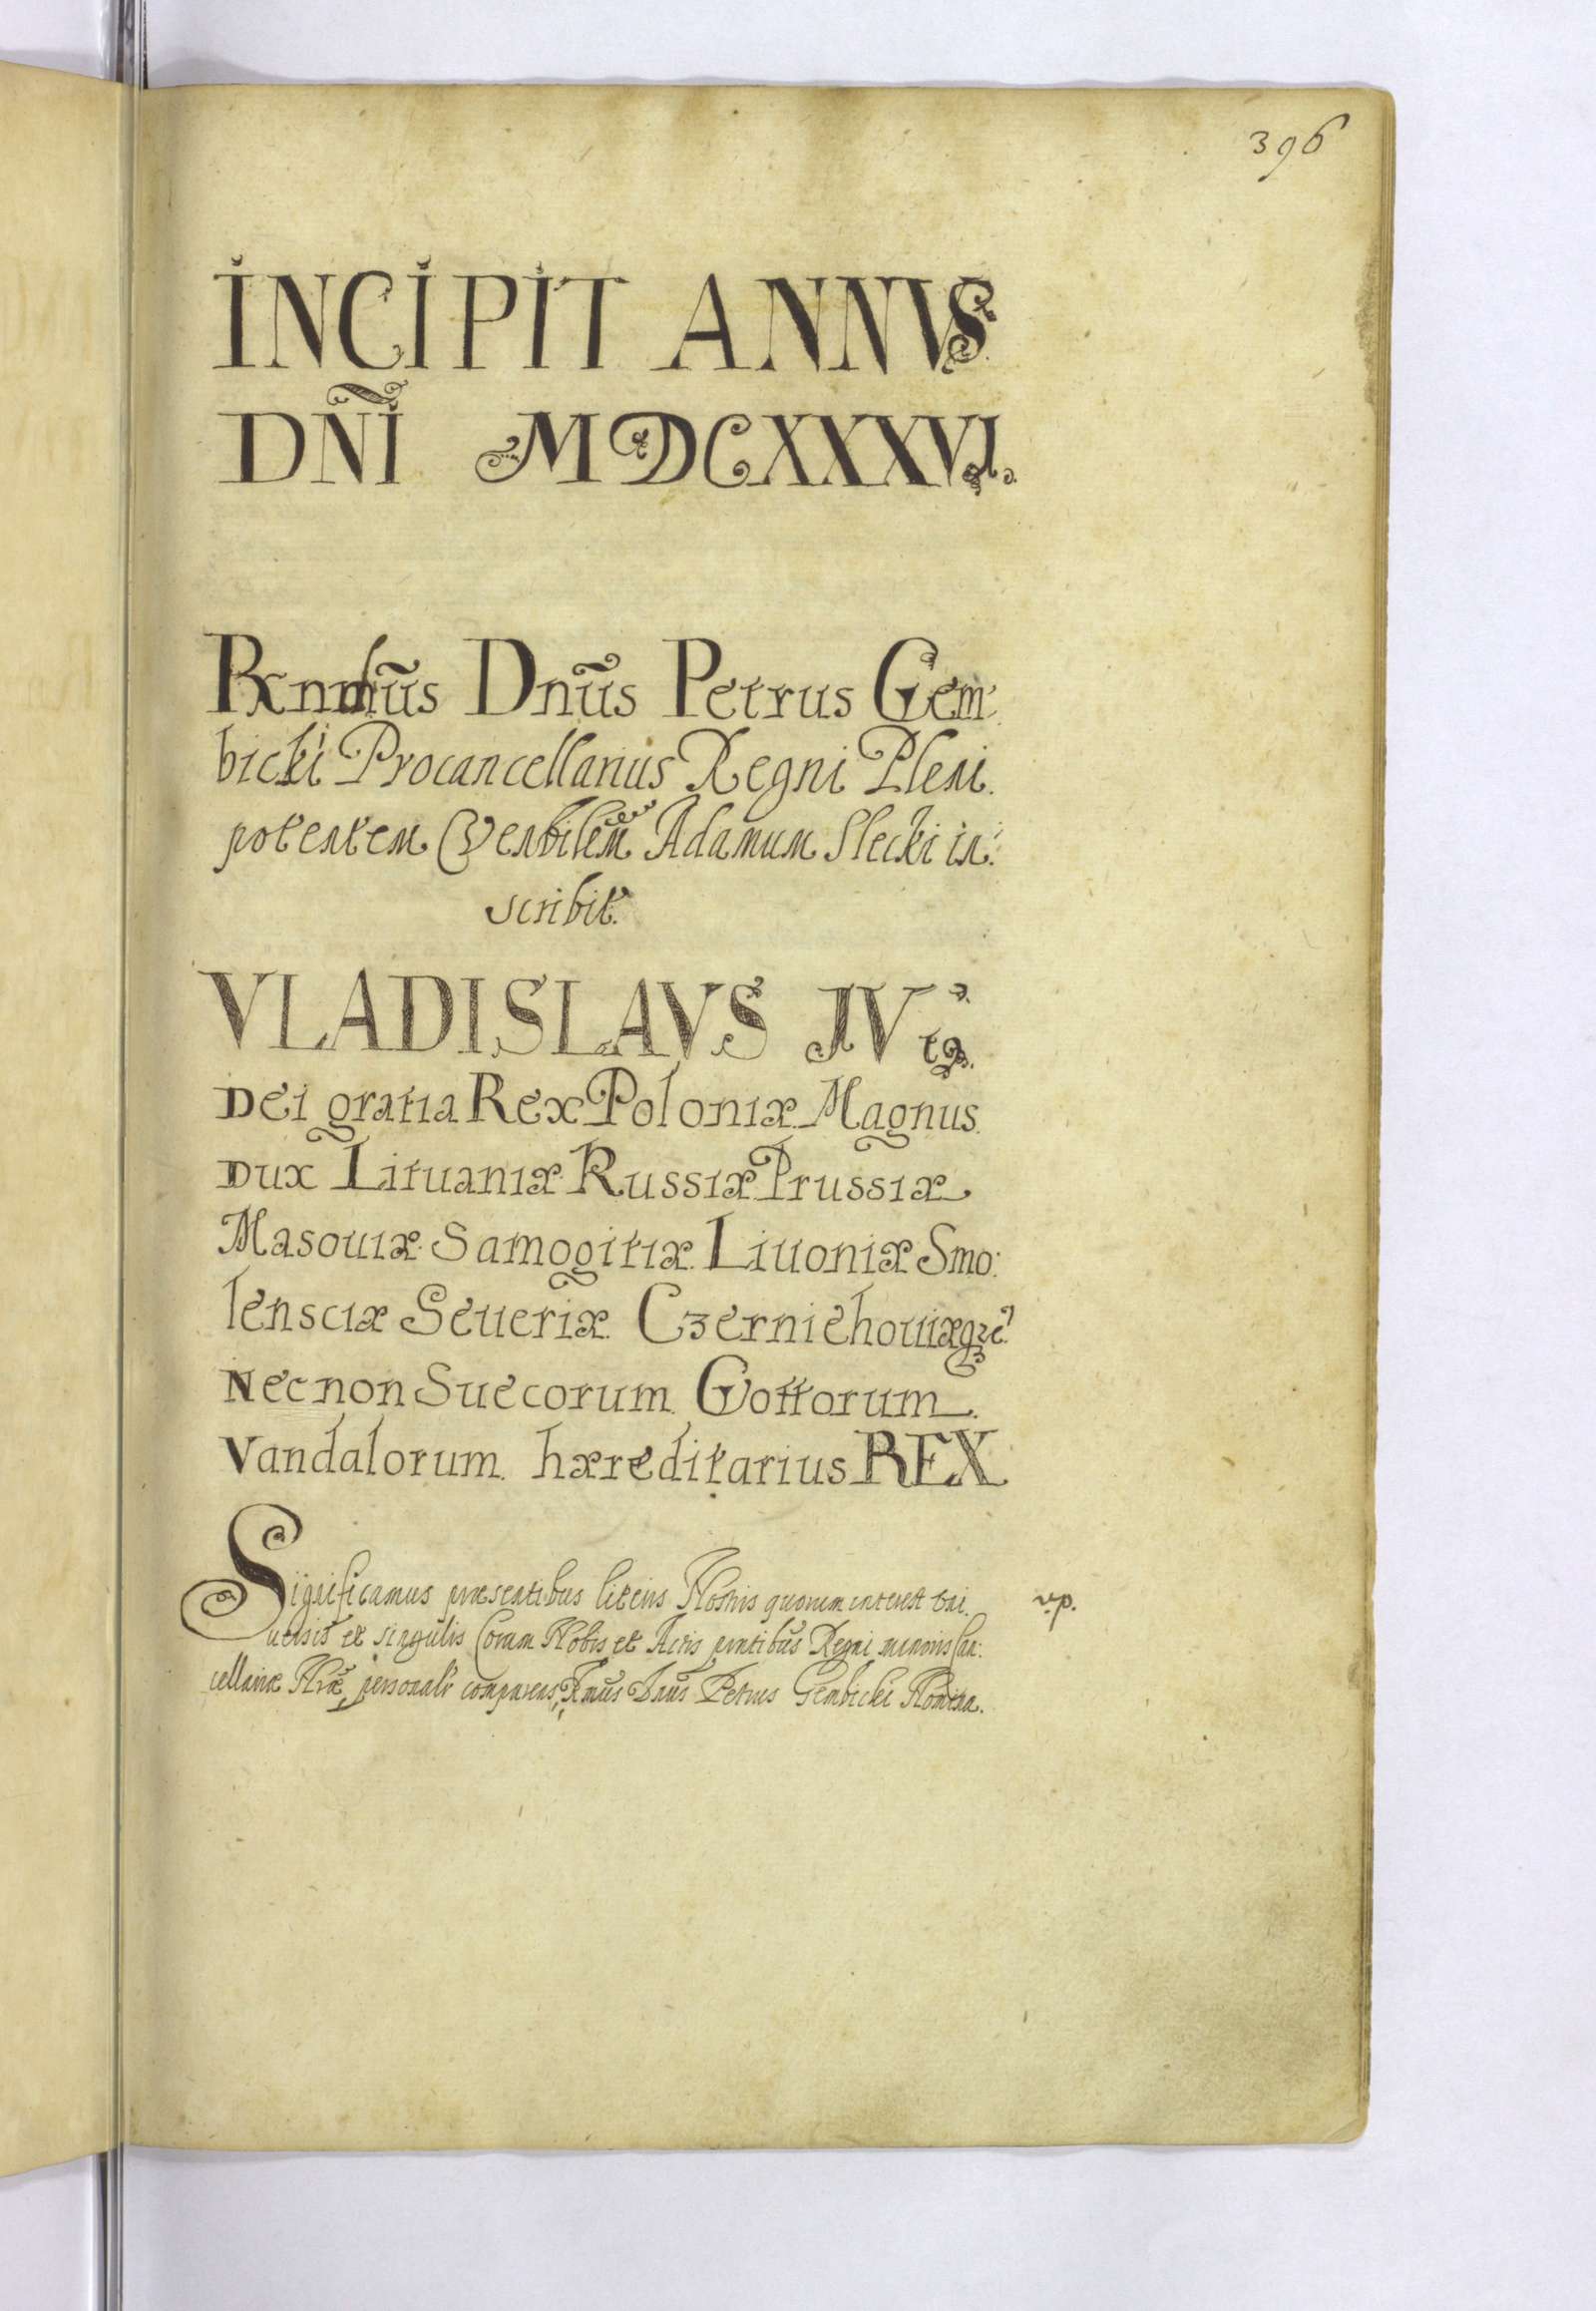 396
INCIPIT ANNVS
DÑI MDCXXXVI.
Rnndus Dnũs Petrus Gem:
bicki Procancellarius Regni Pleni
potentem Venbilem Adamum Slecki in:
scribit.
VLADISLAVS IV tus.
Dei gratia Rex Poloniæ Magnus
Dux Lituaniæ Russiæ Prussiæ
Masouiæ Samogitiæ Liuoniæ Smo:
lensciæ Seueriæ Czerniehouiæqze
Necnon Suecorum Gottorum
Vandalorum hæreditarius REX
Significamus præsentibus literis Nostris quorum interest vni
uersis et singulis Coram Nobis et Actis pntibus Regni minoris Can:
cellariæ Nræ personalr comparens, Rmus Dnus Petrus Gembicki Nomina.